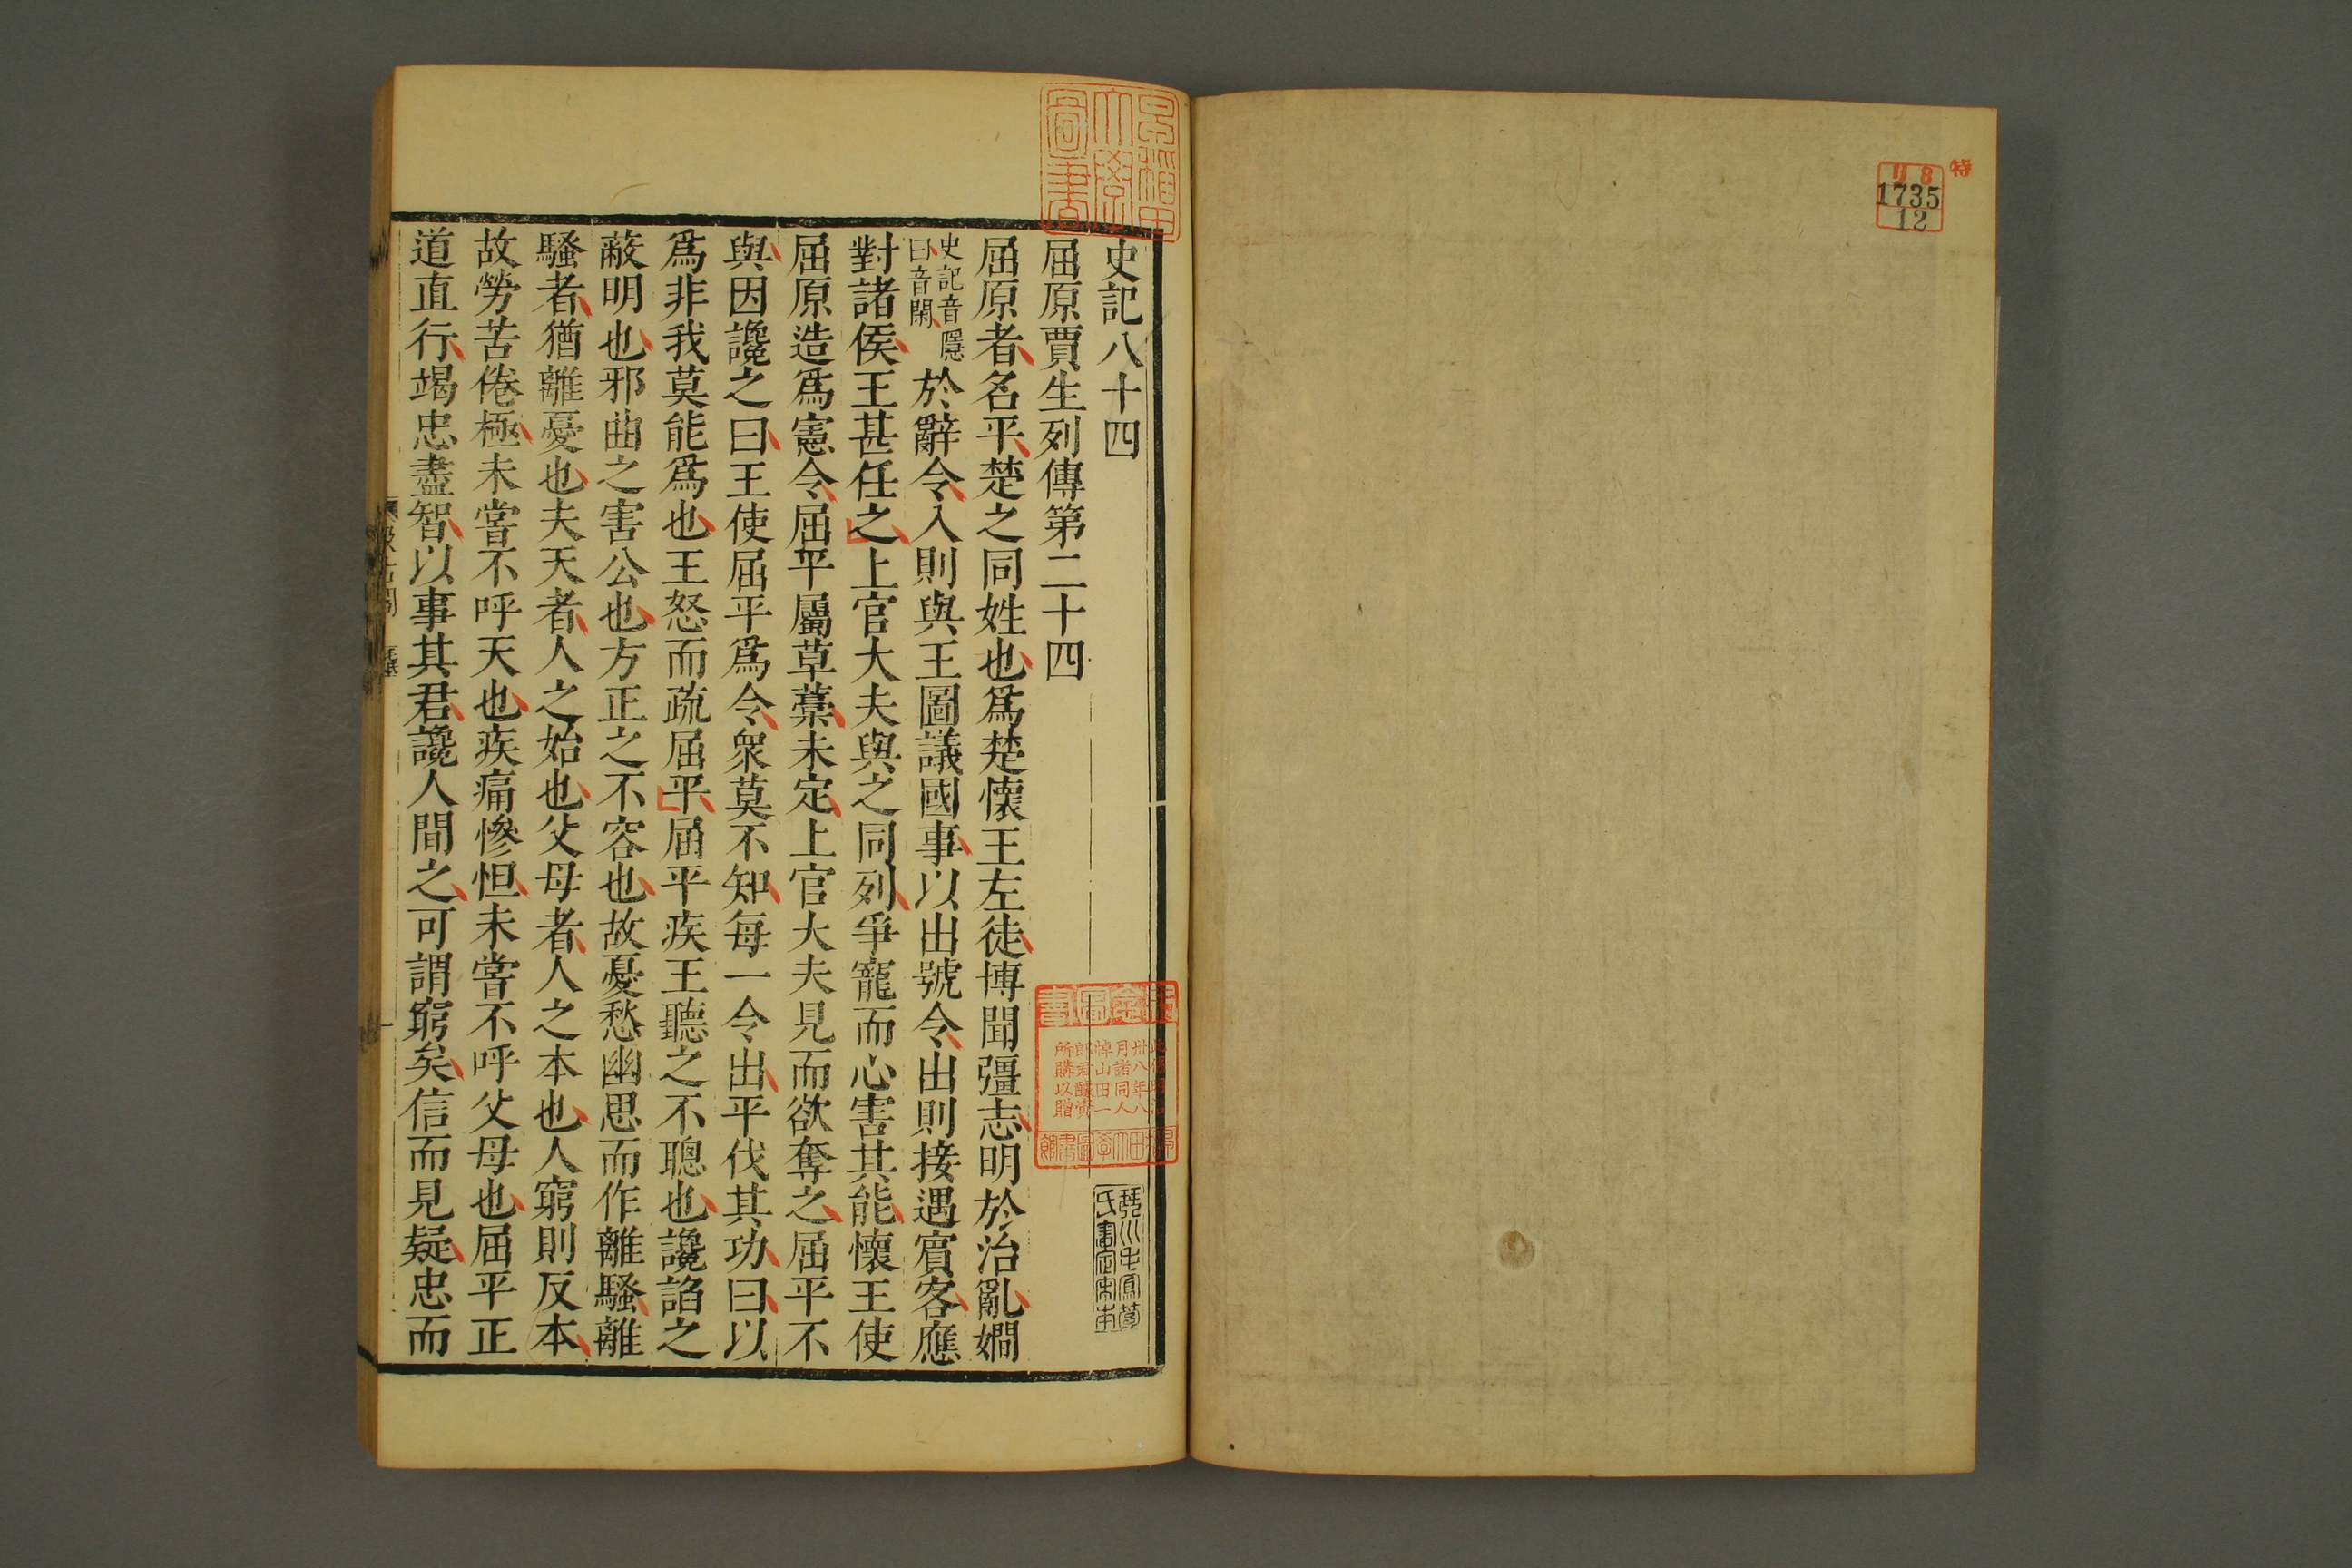 特
リ8
1735
12
早稲田
大學
圖書
史記八十四
屈原賈生列傳第二十四
屈原者名平楚之同姓也爲楚懷王左徒博聞彊志明於治亂嫺
史記音隱
曰音閑
於辭令入則與王圖議國事以出號令出則接遇賓客應
對諸侯王甚任之上官大夫與之同列爭寵而心害其能懷王使
屈原造爲憲令屈平屬草藳未定上官大夫見而欲奪之屈平不
與因讒之曰王使屈平爲令衆莫不知每一令出平伐其功曰以
爲非我莫能爲也王怒而疏屈平屈平疾王聽之不聰也讒諂之
蔽明也邪曲之害公也方正之不容也故憂愁幽思而作離騷離
騷者猶離憂也夫天者人之始也父母者人之本也人窮則反本
故勞苦倦極未嘗不呼天也疾痛慘怛未嘗不呼父母也屈平正
道直行竭忠盡智以事其君讒人間之可謂窮矣信而見疑忠而
卅八年八
月諸同人
悼山田一
郎君醵資
所購以贈
琴川毛鳳苞
氏審定宋本